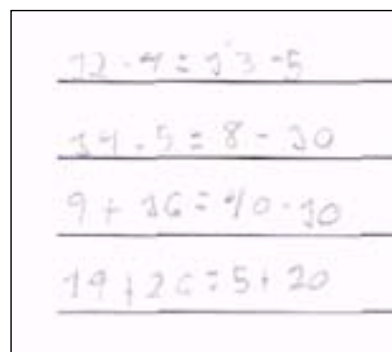 12 - 4 = 13 - 5
14 - 5 = 8 - 10
9 + 16 = 40 - 10
19 + 26 = 5 + 20